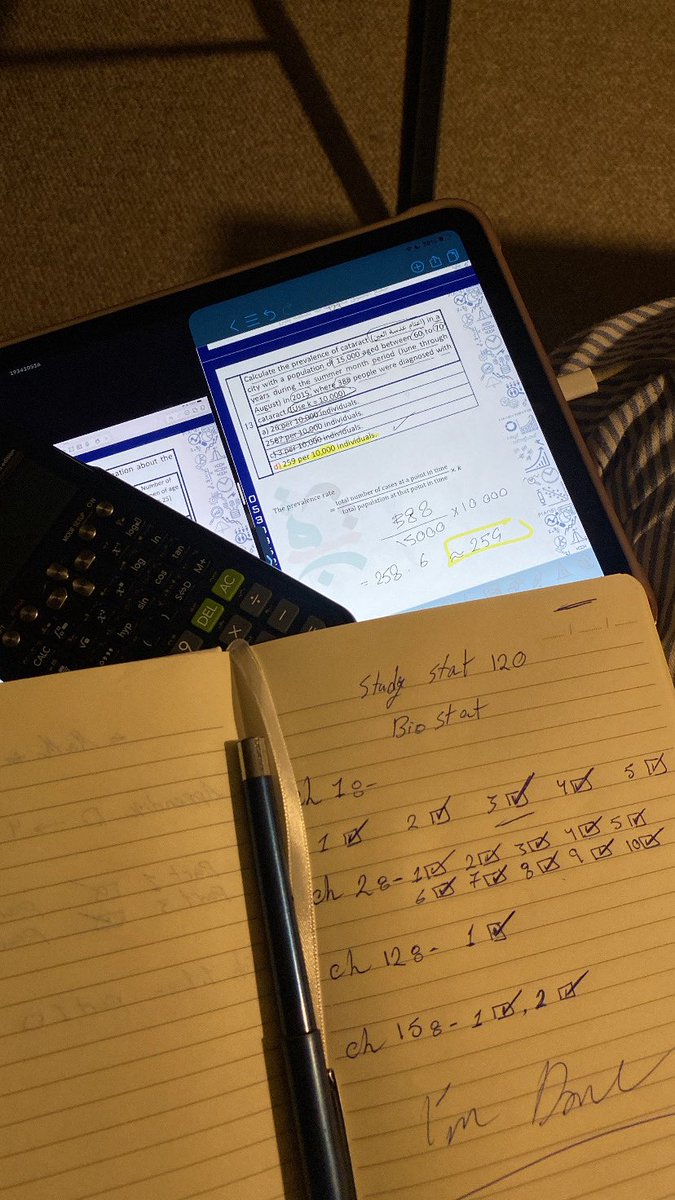 Calculate the prevalence of cataract (إعتام عدسة العين) in a
city with a population of 15,000 aged between 60 to 70
years during the summer month period (June through
August) in 2015, where 388 people were diagnosed with
cataract (Use k = 10,000)
13
a) 26 per 10,000 individuals
2587 per 10,000 individuals.
13 per 10,000 individuals.
d) 259 per 10,000 individuals.
The prevalence rate
= total number of cases at a point in time / total population at that point in time × k
388
/15000 × 10 000
= 258.6 ≈ 259
ation about the
Number of
en of age
CALC
hyp
sin
cos
tan
log
ln
S⇔D
M+
DEL
AC
9
×
÷
−
ON
Study stat 120
Bio stat
1 8-
1 ☑ 2 ☑ 3 ☑ 4 ☑ 5 ☑
ch 2 8- 1 ☑ 2 ☑ 3 ☑ 4 ☑ 5 ☑
6 ☑ 7 ☑ 8 ☑ 9 ☑ 10 ☑
ch 12 8- 1 ☑
ch 15 8- 1 ☑, 2 ☑
I'm Done